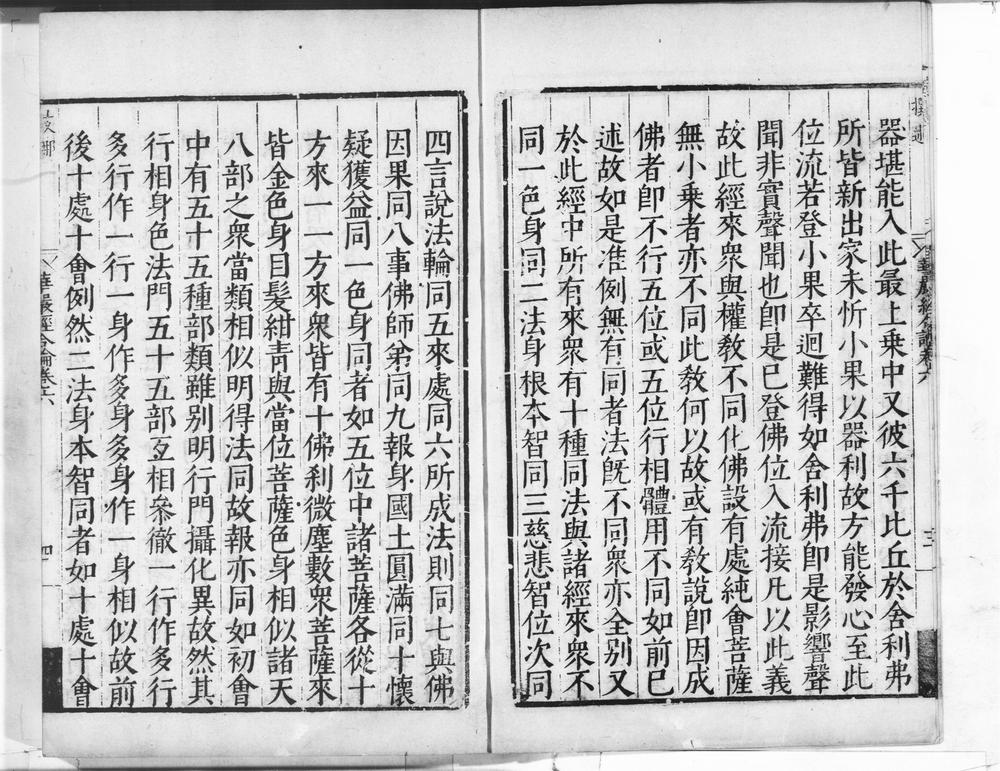 器堪能入此最上乗中又彼六千比丘於舍利弗
所皆新出家未忻小果以器利故方能發心至此
位流若登小果卒迴難得如舍利弗即是影響聲
聞非實聲聞也即是已登佛位入流接凡以此義
故此經來衆與權教不同化佛設有處純會菩薩
無小乗者亦不同此教何以故或有教說即因成
佛者即不行五位或五位行相體用不同如前已
述故如是准例無有同者法旣不同衆亦全別又
於此經中所有來衆有十種同法與諸經來衆不
同一色身同二法身根本智同三慈悲智位次同
四言說法輪同五來處同六所成法則同七與佛
因果同八事佛師弟同九報身國土圓滿同十懷
疑獲益同一色身同者如五位中諸菩薩各從十
方來一一方來衆皆有十佛刹微塵數衆菩薩來
皆金色身目髮紺青與當位菩薩色身相似諸天
八部之衆當類相似明得法同故報亦同如初會
中有五十五種部類雖別明行門攝化異故然其
行相身色法門五十五部互相叅徹一行作多行
多行作一行一身作多身多身作一身相似故前
後十處十會例然二法身本智同者如十處十會
華嚴經合論卷六
四